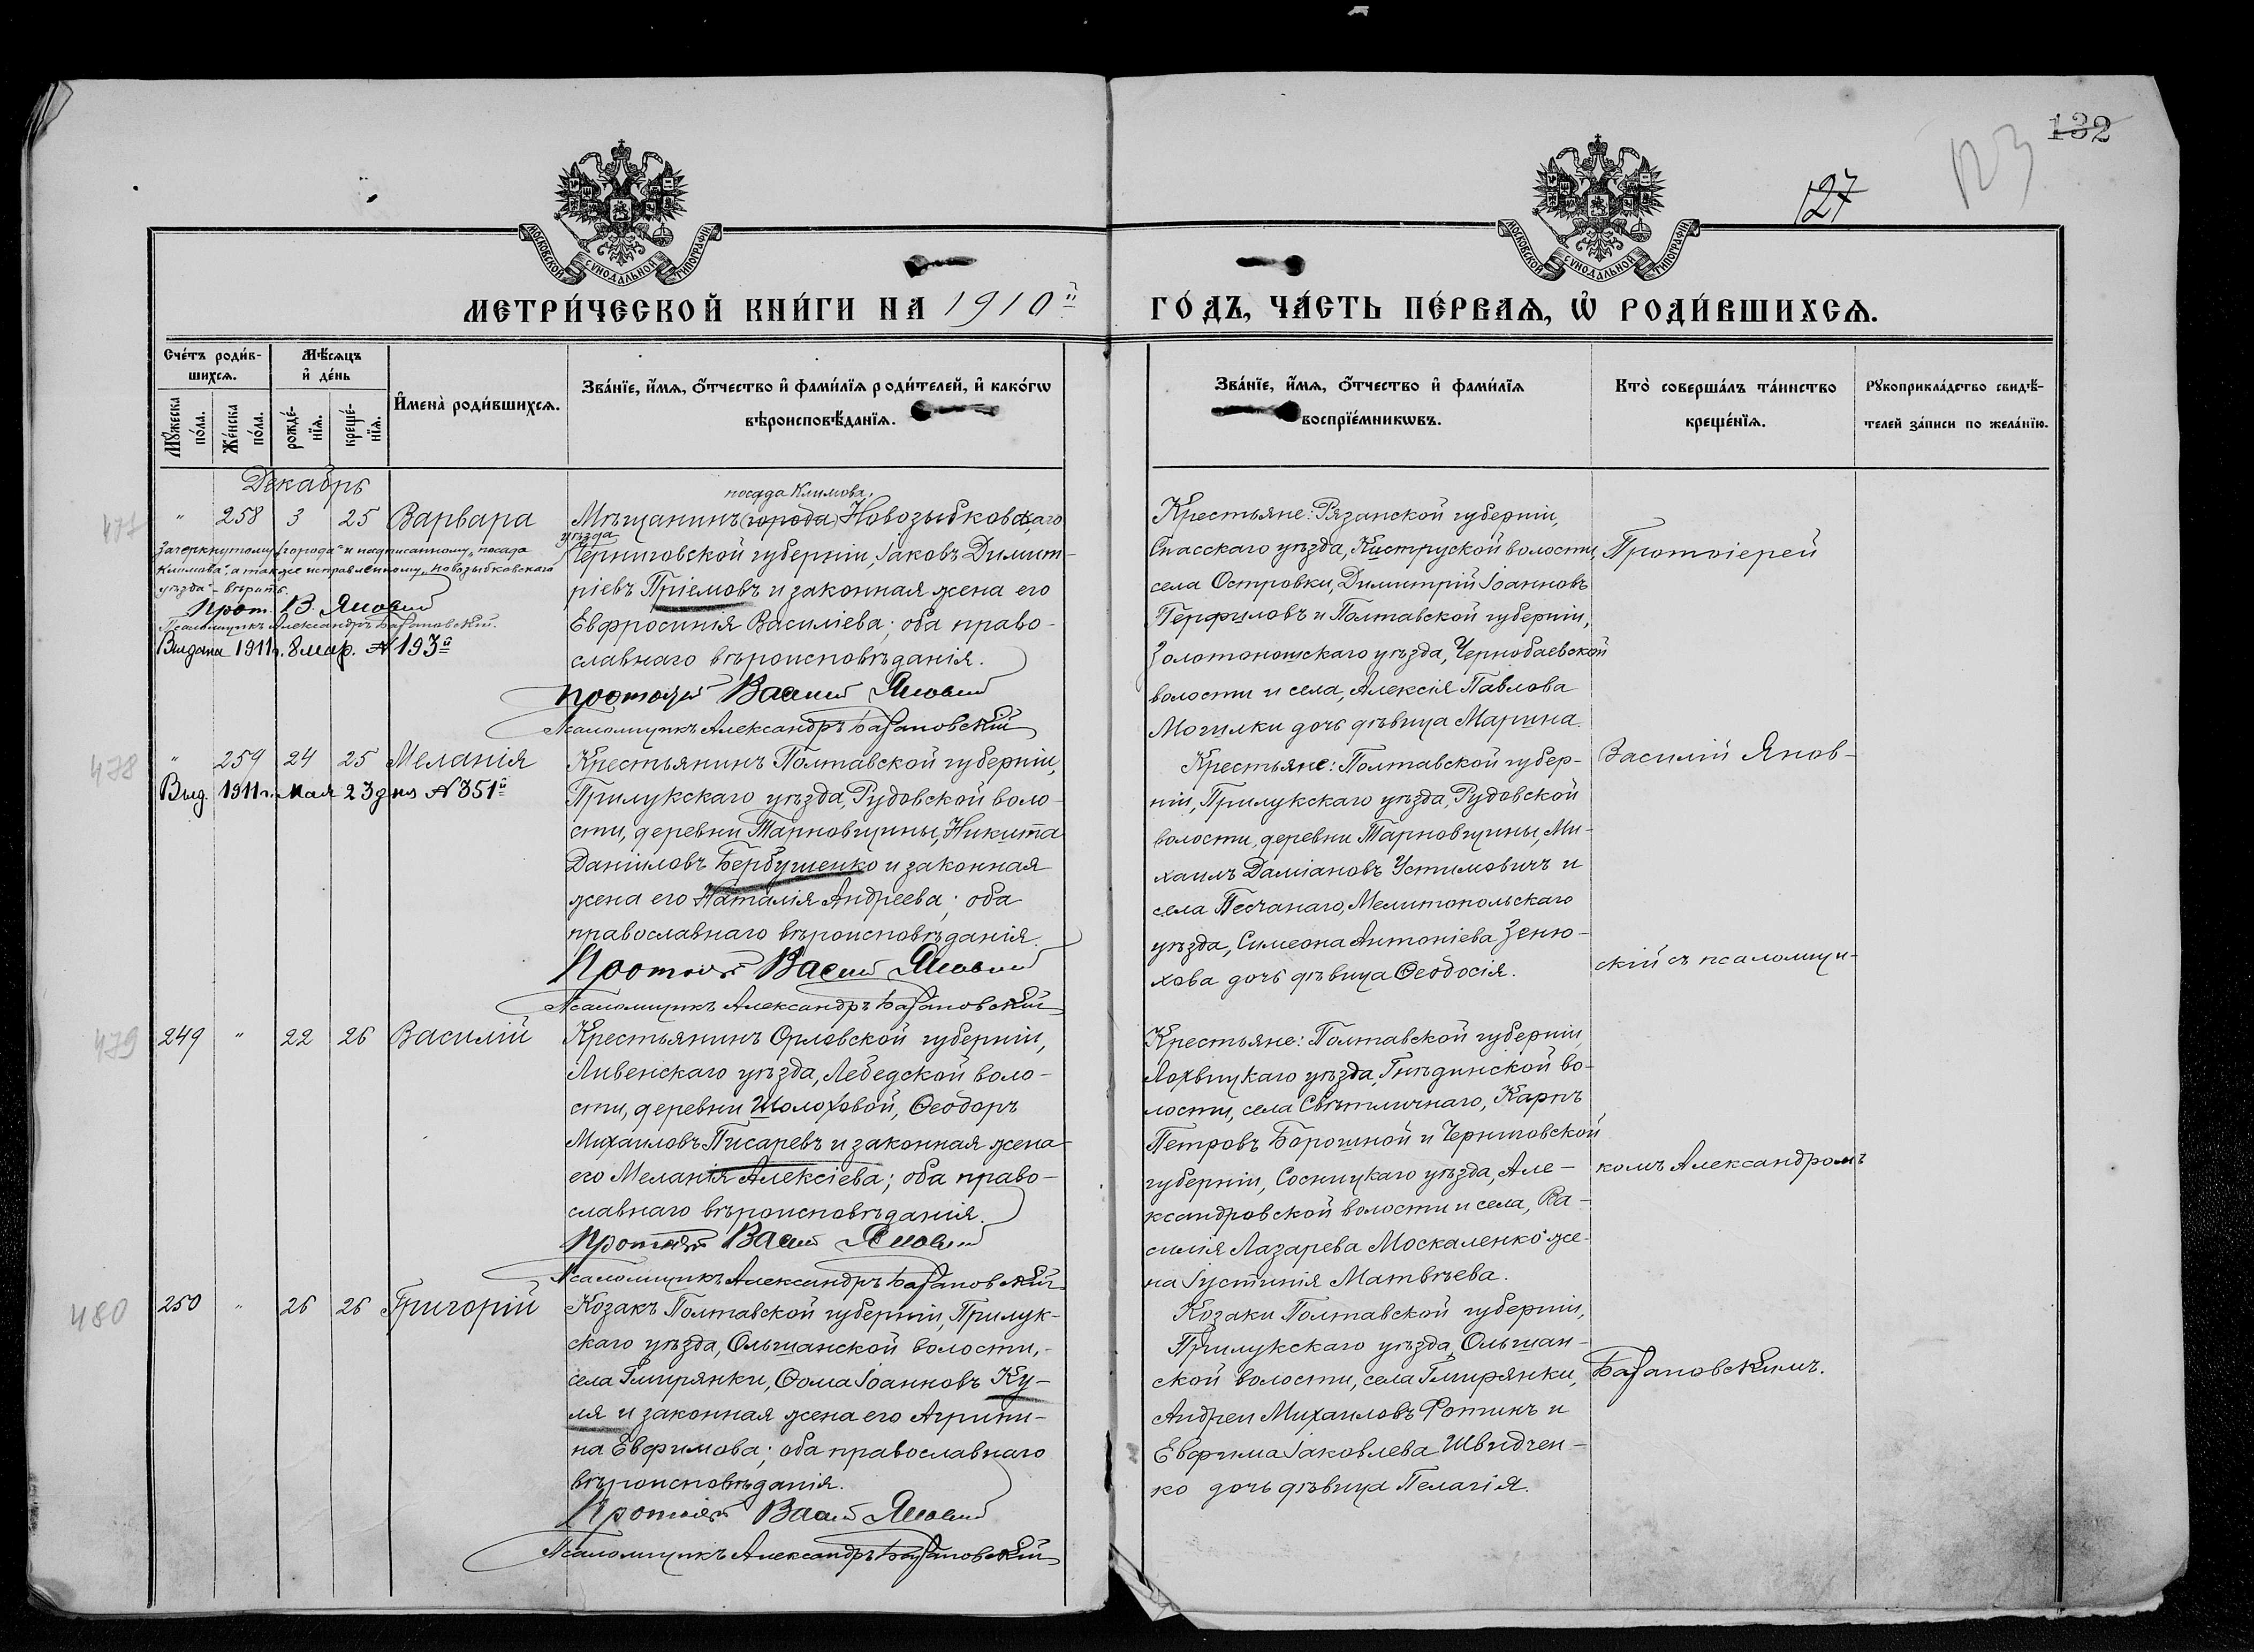 132
127
123
МОСКОВСКОЙ СѴНОДАЛЬНОЙ ТИПОГРАФІИ
МОСКОВСКОЙ СѴНОДАЛЬНОЙ ТИПОГРАФІИ
МЕТРИ́ЧЕСКОЙ КНИ́ГИ НА 1910й
ГО́ДЪ, ЧА́СТЬ ПЕ́РВАѦ, Ѡ҆ РОДИ́ВШИХСѦ.
Сче́тъ роди́в-
шихсѧ.
Мѣ́сѧцъ
и҆ де́нь
Мꙋ́жеска по́ла.
Же́нска по́ла.
рожде́-нїѧ.
креще́-нїѧ.
И҆мена̀ роди́вшихсѧ.
Зва́нїе, и҆́мѧ, ѻ҆́тчество и҆ фами́лїѧ роди́телей, и҆ како́гѡ
вѣроисповѣ́данїѧ.
Зва́нїе, и҆́мѧ, ѻ҆́тчество и҆ фами́лїѧ
воспрїе́мникѡвъ.
Кто̀ соверша́лъ та́инство
креще́нїѧ.
Рꙋкоприкла́дство свидѣ́-
телей за́писи по жела́нїю.
Декабрь
477 " 258 3 25 Варвара
посада Климова,
Мѣщанинъ (города) Новозыбковскаго
уѣзда
Черниговской губерніи, Іаковъ Димит-
ріевъ Пріемовъ и законная жена его
Евфросинія Василіева; оба право-
славнаго вѣроисповѣданія.
Протоіерей Василій Яновскій
Псаломщикъ Александръ Базановскій
Зачеркнутому „города" и надписанному „посада
Климова", а также исправленному „Новозыбковскаго
уѣзда" – вѣрить.
Прот. В. Яновскій
Псаломщикъ Александръ Базановскій.
Выдана 1911 г. 8 мар. № 193й
Крестьяне: Рязанской губерніи,
Спасскаго уѣзда, Киструской волости,
села Островки, Димитрій Іоанновъ
Герфиловъ и Полтавской губерніи,
Золотоношскаго уѣзда, Чернобаевской
волости и села, Алексія Павлова
Могилки дочь дѣвица Марина.
Протоіерей
478 " 259 24 25 Меланія
Выд. 1911 г. мая 23 дня № 351й
Крестьянинъ Полтавской губерніи,
Прилукскаго уѣзда, Рудовской воло-
сти, деревни Тарновщины, Никита
Даніиловъ Бербушенко и законная
жена его Наталія Андреева; оба
православнаго вѣроисповѣданія.
Протоіерей Василій Яновскій
Псаломщикъ Александръ Базановскій
Крестьяне: Полтавской губер-
ніи, Прилукскаго уѣзда, Рудовской
волости, деревни Тарновщины, Ми-
хаилъ Даміановъ Устимовичъ и
села Песчанаго, Мелитопольскаго
уѣзда, Симеона Антоніева Зеню-
хова дочь дѣвица Ѳеодосія.
Василій Янов-
скій съ псаломщи-
479 249 " 22 26 Василій
Крестьянинъ Орловской губерніи,
Ливенскаго уѣзда, Лебедской воло-
сти, деревни Шолоховой, Ѳеодоръ
Михаиловъ Писаревъ и законная жена
его Меланія Алексіева; оба право-
славнаго вѣроисповѣданія.
Протоіерей Василій Яновскій
Псаломщикъ Александръ Базановскій
Крестьяне: Полтавской губерніи,
Лохвицкаго уѣзда, Гнѣдинской во-
лости, села Свѣтличнаго, Карпъ
Петровъ Борошной и Черниговской
губерніи, Сосницкаго уѣзда, Але-
ксандровской волости и села, Ва-
силія Лазарева Москаленко же-
на Іустинія Матвѣева.
комъ Александромъ
480 250 " 26 26 Григорій
Козакъ Полтавской губерніи, Прилук-
скаго уѣзда, Ольшанской волости,
села Гмирянки, Ѳома Іоанновъ Ку-
ля и законная жена его Агрипи-
на Евфимова; оба православнаго
вѣроисповѣданія.
Протоіерей Василій Яновскій
Псаломщикъ Александръ Базановскій
Козаки Полтавской губерніи,
Прилукскаго уѣзда, Ольшан-
ской волости, села Гмирянки,
Андреи Михаиловъ Фотинъ и
Евфима Іаковлева Швидчен-
ко дочь дѣвица Пелагія.
Базановскимъ.